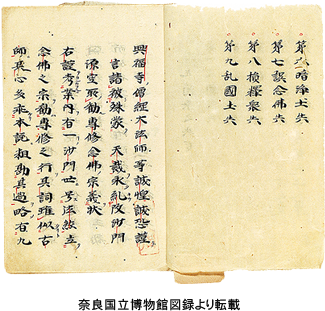 第六暗淨土失
第七誤念佛失
第八損釋衆失
第九乱國土失
興福寺僧綱大法師等誠惶誠恐謹
言請被殊蒙 天裁永糺改沙門
源空所勸專修念佛宗義状
右謹考案内有一沙門世号法然立
念佛之宗勸專修之行其詞雖似古
師其心多乖本説粗勘其過略有九
奈良国立博物館図録より転載